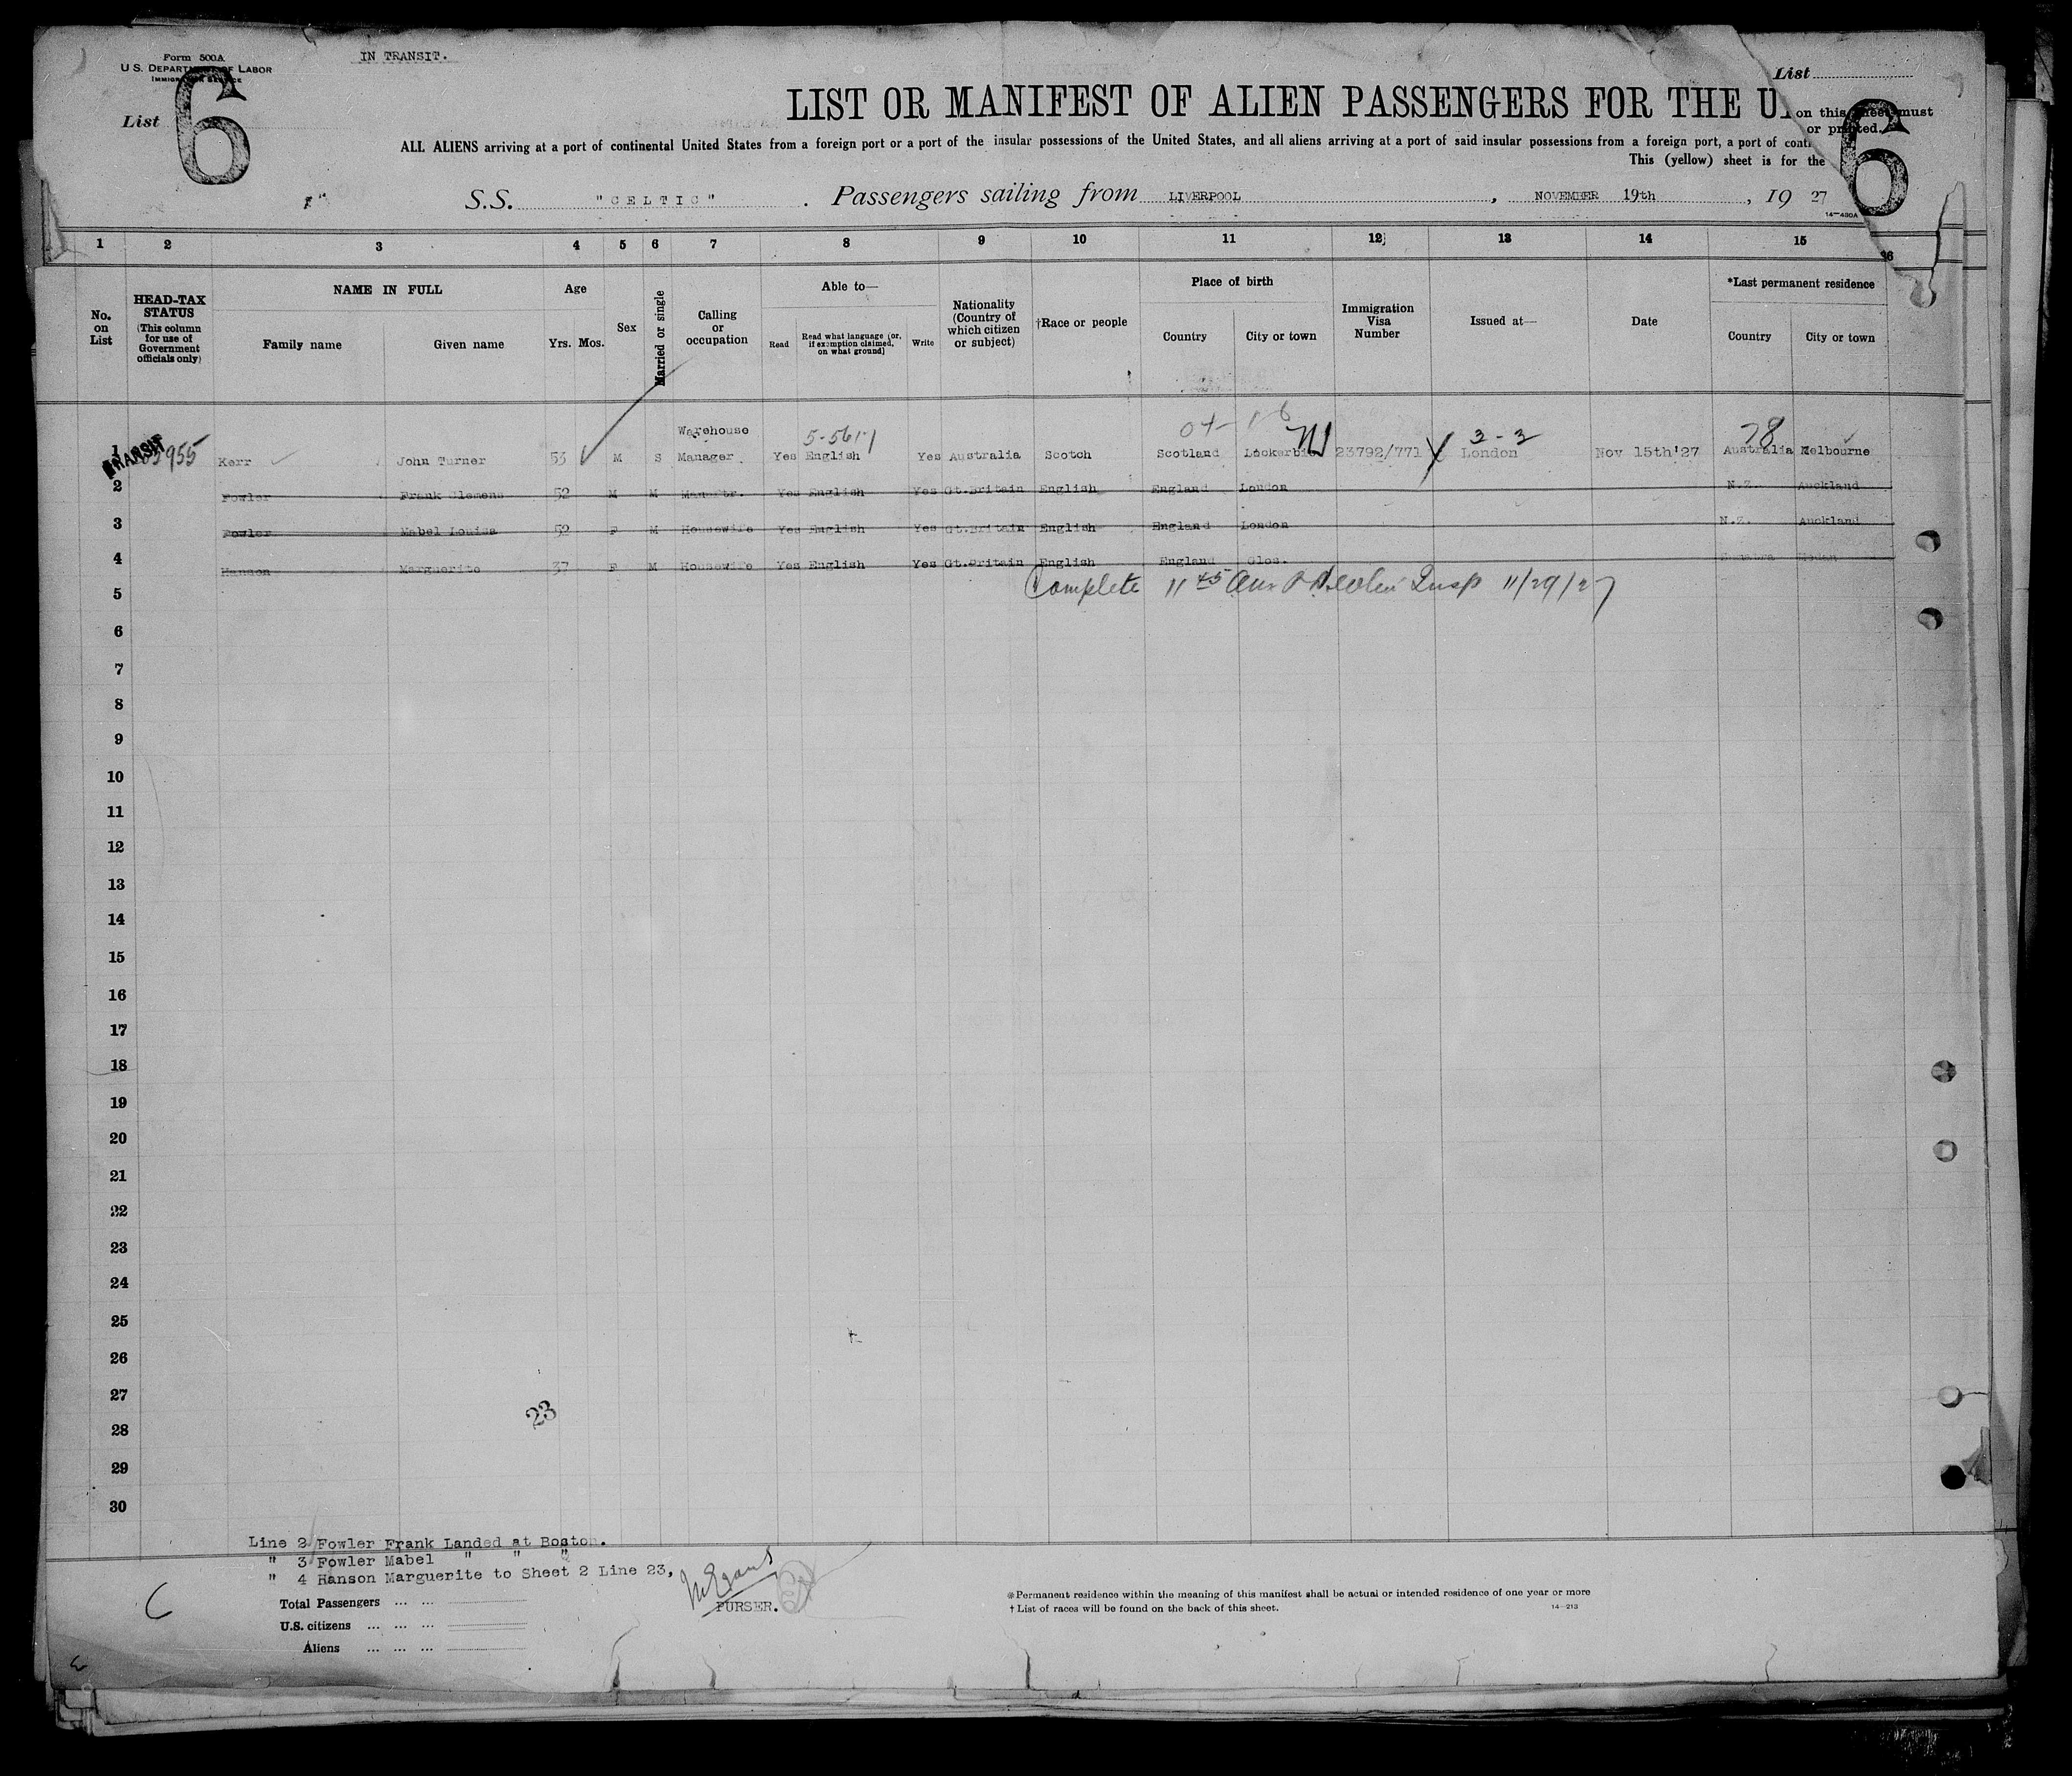 Form 500A
U.S. DEPARTMENT OF LABOR
IMMIGRATION SERVICE
IN TRANSIT.
List 6
List 6
LIST OR MANIFEST OF ALIEN PASSENGERS FOR THE U
on this sheet must
or printed.
ALL ALIENS arriving at a port of continental United States from a foreign port or a port of the insular possessions of the United States, and all aliens arriving at a port of said insular possessions from a foreign port, a port of conti
This (yellow) sheet is for the
S.S. "CELTIC". Passengers sailing from LIVERPOOL, NOVEMBER 19th, 19 27
14-430A
1 2 3 4 5 6 7 8 9 10 11 12 13 14 15 16
No. on List
HEAD-TAX STATUS (This column for use of Government officials only)
NAME IN FULL
Family name Given name
Age
Yrs. Mos.
Sex
Married or single
Calling or occupation
Able to—
Read Read what language (or, if exemption claimed, on what ground) Write
Nationality (Country of which citizen or subject)
†Race or people
Place of birth
Country City or town
Immigration Visa Number
Issued at—
Date
*Last permanent residence
Country City or town
TRANSIT
5-561-1
3-3
78
1 Kerr John Turner 53 M S Warehouse Manager Yes English Yes Australia Scotch Scotland Lockerbie 23792/771 London Nov 15th'27 Australia Melbourne
2 Fowler Frank Clemens 52 M M Manftr. Yes English Yes Gt.Britain English England London N.Z. Auckland
3 Fowler Mabel Louisa 52 F M Housewife Yes English Yes Gt.Britain English England London N.Z. Auckland
4 Hanson Marguerite 37 F M Housewife Yes English Yes Gt.Britain English England Glos. Sumatra Medan
Complete 11 45 Insp 11/29/27
5
6
7
8
9
10
11
12
13
14
15
16
17
18
19
20
21
22
23
24
25
26
27
23
28
29
30
Line 2 Fowler Frank Landed at Boston.
" 3 Fowler Mabel " " "
" 4 Hanson Marguerite to Sheet 2 Line 23,
PURSER.
Total Passengers ... ...
U.S. citizens ... ... ...
Aliens ... ... ...
*Permanent residence within the meaning of this manifest shall be actual or intended residence of one year or more
† List of races will be found on the back of this sheet.
14-213